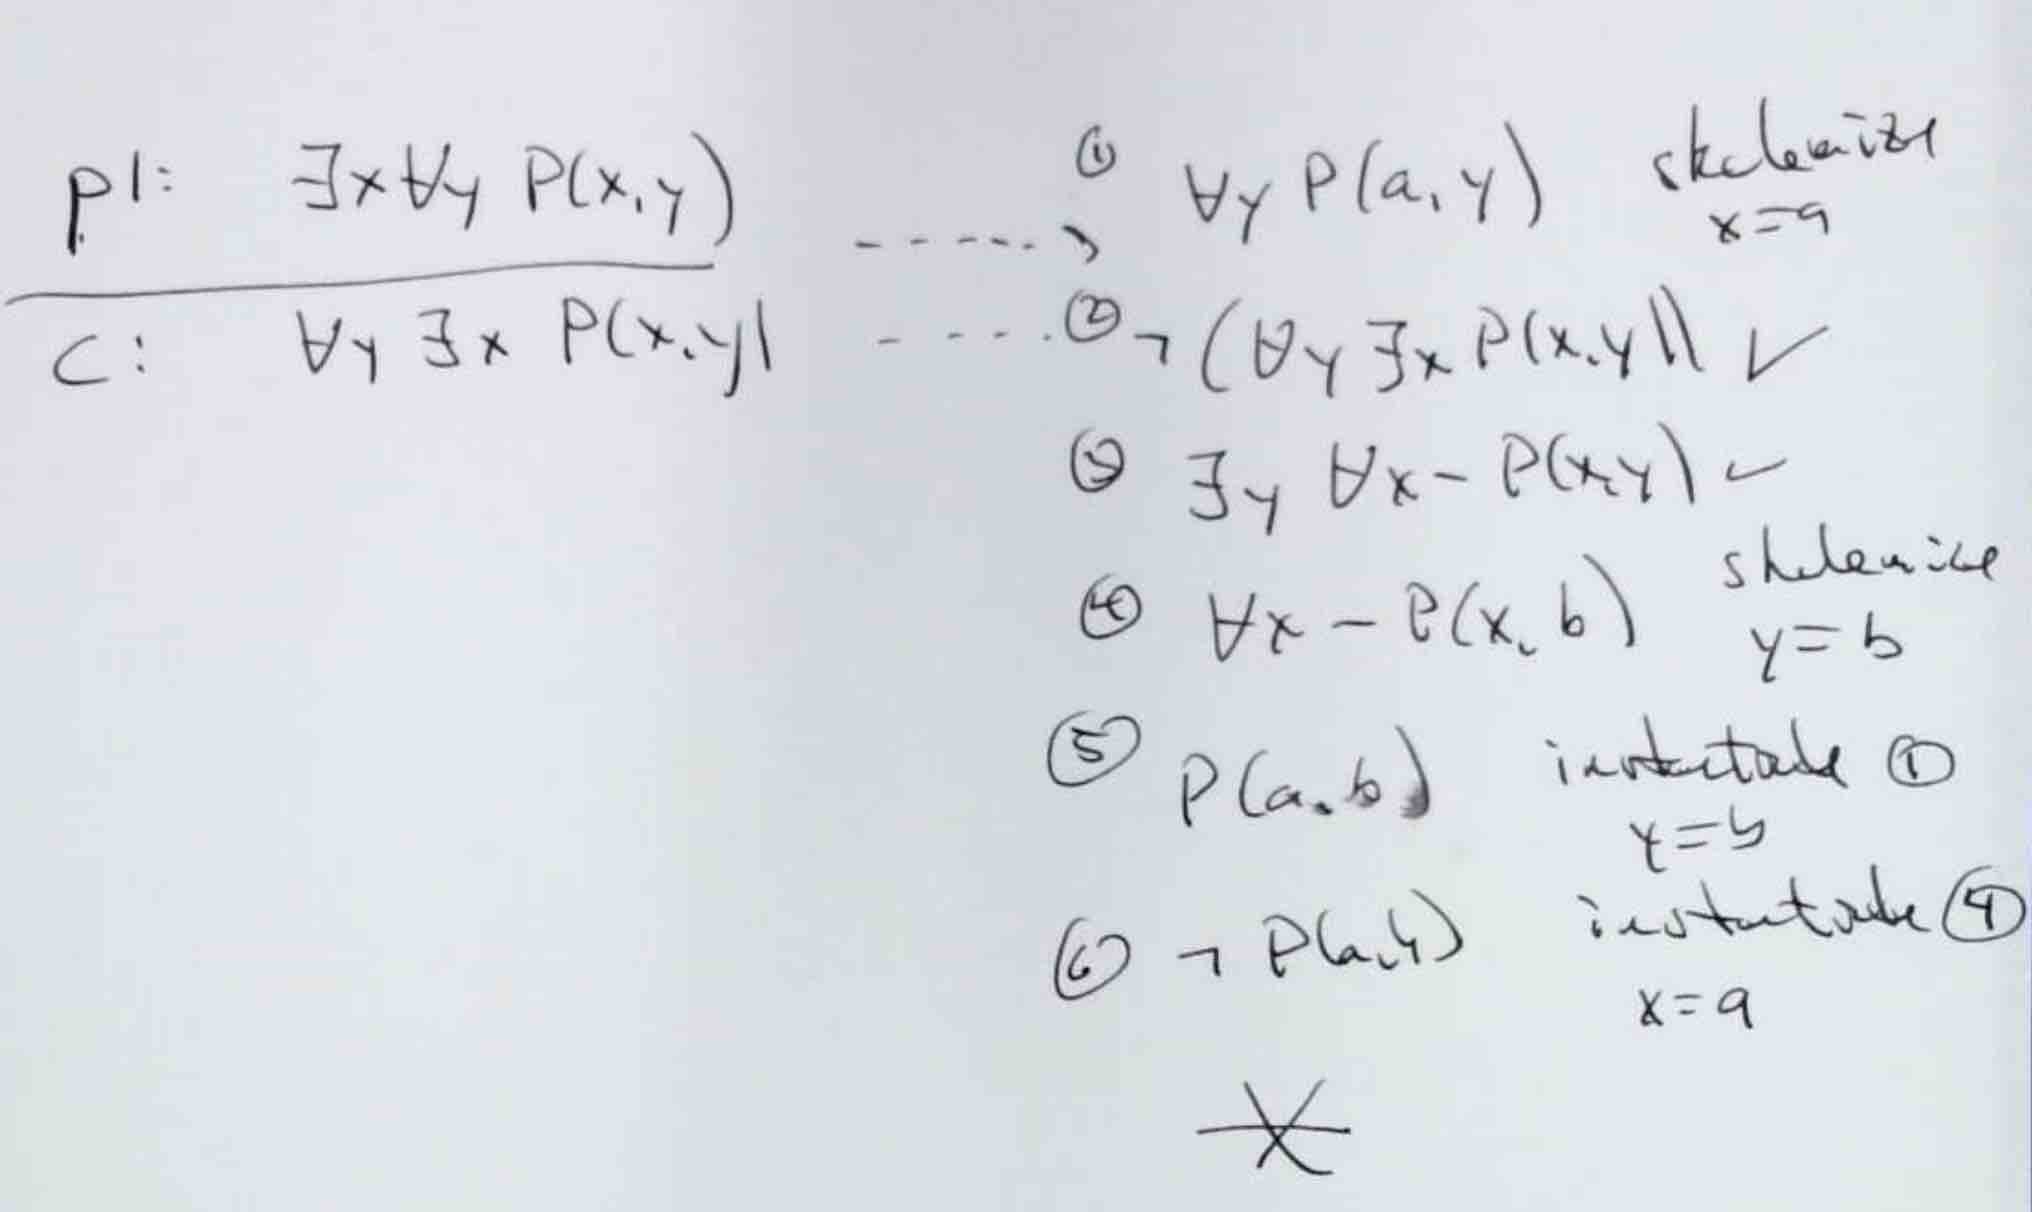 P1: ∃x∀y P(x,y)
C: ∀y ∃x P(x,y)
① ∀y P(a,y) skolemize
x=a
② ¬(∀y ∃x P(x,y)) ✓
③ ∃y ∀x ¬ P(x,y) ✓
④ ∀x ¬ P(x,b) skolemize
y=b
⑤ P(a,b) instantiate ①
y=b
⑥ ¬ P(a,b) instantiate ④
x=a